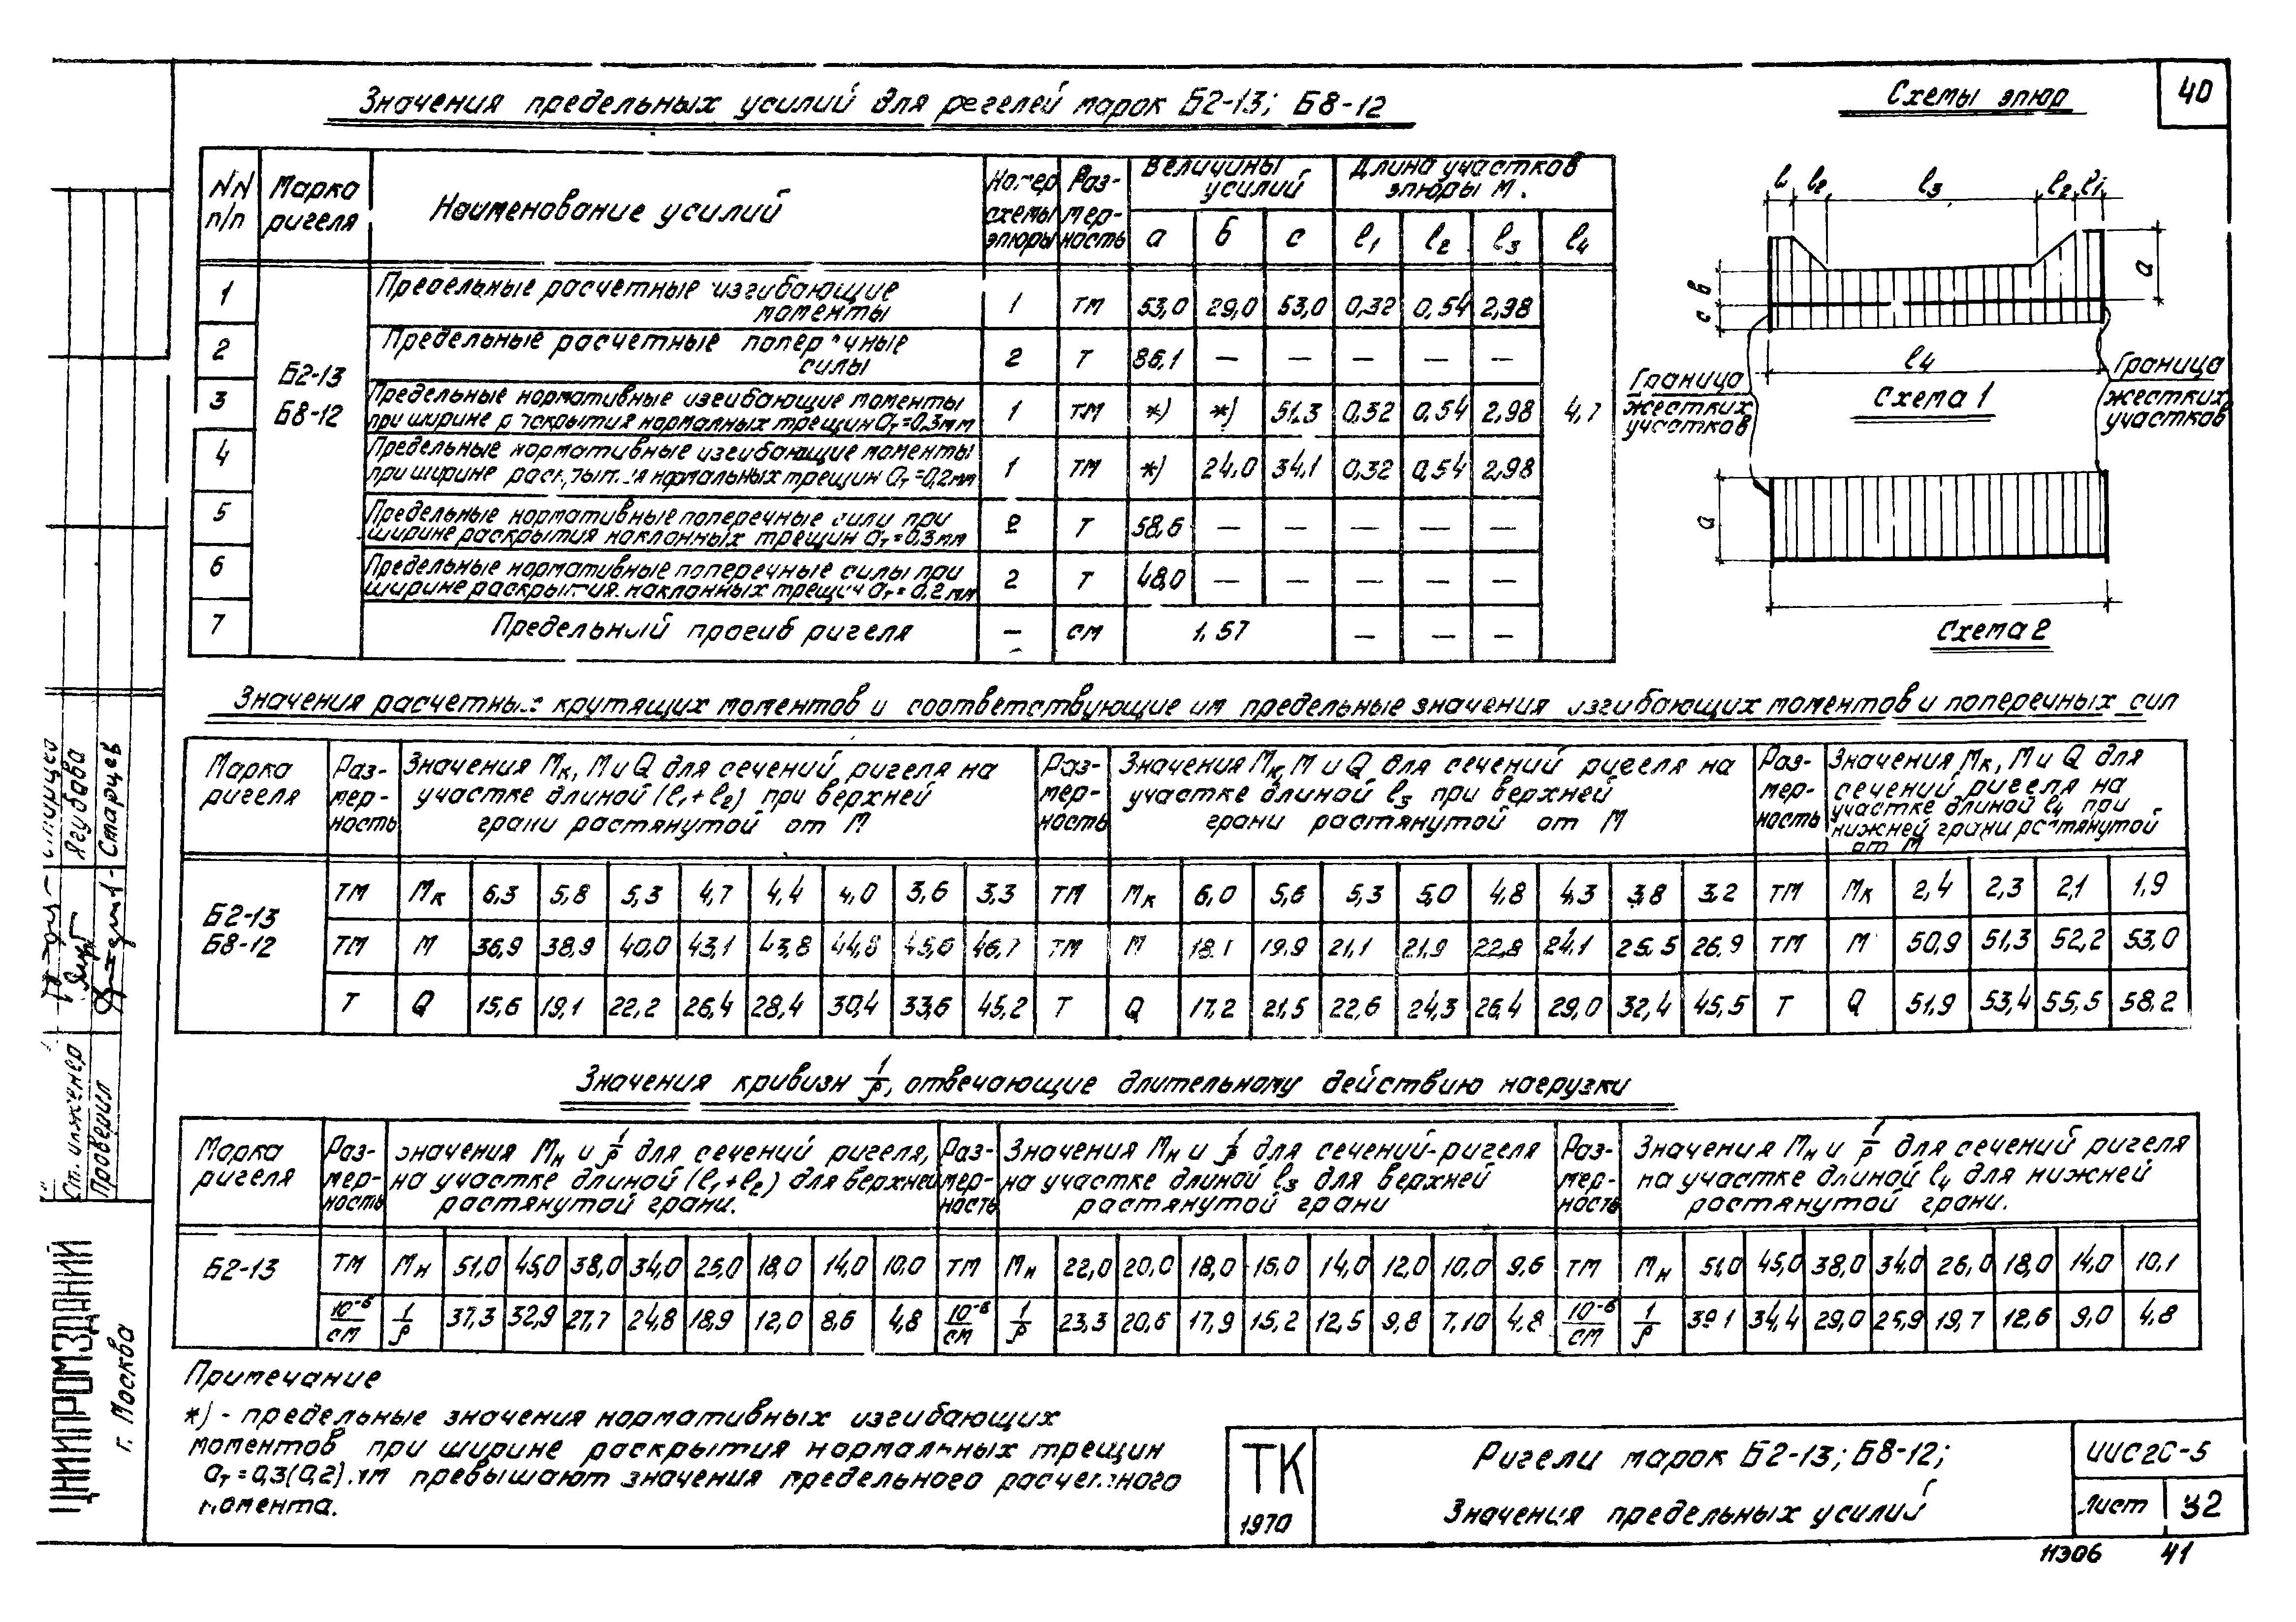 40
Значения предельных усилий для регелей марок Б2-13; Б8-12
Схемы эпюр
NN п/п | Марка ригеля | Наименование усилий | Номер схемы эпюры | Раз-мер-ность | Величины усилий | Длина участков эпюры м.
а | б | с | l1 | l2 | l3 | l4
Б2-13
Б8-12
4,7
1 | Предельные расчетные изгибающие моменты | 1 | тм | 53,0 | 29,0 | 53,0 | 0,32 | 0,54 | 2,98
2 | Предельные расчетные поперечные силы | 2 | т | 86,1 | — | — | — | — | —
3 | Предельные нормативные изгибающие моменты при ширине раскрытия нормалных трещин ат=0,3мм | 1 | тм | *) | *) | 51,3 | 0,32 | 0,54 | 2,98
4 | Предельные нормативные изгибающие моменты при ширине раскрытия нормальных трещин ат=0,2мм | 1 | тм | *) | 24,0 | 34,1 | 0,32 | 0,54 | 2,98
5 | Предельные нормативные поперечные сили при ширине раскрытия наклонных трещин ат=0,3мм | 2 | т | 58,6 | — | — | — | — | —
6 | Предельные нормативные поперечные силы при ширине раскрытия наклонных трещин ат=0,2мм | 2 | т | 48,0 | — | — | — | — | —
7 | Предельный прогиб ригеля | — | см | 1,57 | — | — | —
l1 l2 l3 l2 l1
а
в
с
l4
Граница жестких участков
Схема 1
Граница жестких участков
а
Схема 2
Значения расчетных крутящих моментов и соответствующие им предельные значения изгибающих моментов и поперечных сил
Марка ригеля | Раз-мер-ность | Значения Мк, М и Q для сечений ригеля на участке длиной (l1+l2) при верхней грани растянутой от М | Раз-мер-ность | Значения Мк, М и Q для сечений ригеля на участке длиной l3 при верхней грани растянутой от М | Раз-мер-ность | Значения Мк, М и Q для сечений ригеля на участке длиной l4 при нижней грани растянутой от М
Б2-13
Б8-12
тм | Мк | 6,3 | 5,8 | 5,3 | 4,7 | 4,4 | 4,0 | 3,6 | 3,3 | тм | Мк | 6,0 | 5,6 | 5,3 | 5,0 | 4,8 | 4,3 | 3,8 | 3,2 | тм | Мк | 2,4 | 2,3 | 2,1 | 1,9
тм | М | 36,9 | 38,9 | 40,0 | 43,1 | 43,8 | 44,8 | 45,6 | 46,7 | тм | М | 18,1 | 19,9 | 21,1 | 21,9 | 22,8 | 24,1 | 25,5 | 26,9 | тм | М | 50,9 | 51,3 | 52,2 | 53,0
т | Q | 15,6 | 19,1 | 22,2 | 26,4 | 28,4 | 30,4 | 33,6 | 45,2 | т | Q | 17,2 | 21,5 | 22,6 | 24,3 | 26,4 | 29,0 | 32,4 | 45,5 | т | Q | 51,9 | 53,4 | 55,5 | 58,2
Значения кривизн 1/ρ, отвечающие длительному действию нагрузки
Марка ригеля | Раз-мер-ность | Значения Мн и 1/ρ для сечений ригеля, на участке длиной (l1+l2) для верхней растянутой грани. | Раз-мер-ность | Значения Мн и 1/ρ для сечений ригеля на участке длиной l3 для верхней растянутой грани | Раз-мер-ность | Значения Мн и 1/ρ для сечений ригеля на участке длиной l4 для нижней растянутой грани.
Б2-13
тм | Мн | 51,0 | 45,0 | 38,0 | 34,0 | 25,0 | 18,0 | 14,0 | 10,0 | тм | Мн | 22,0 | 20,0 | 18,0 | 16,0 | 14,0 | 12,0 | 10,0 | 9,6 | тм | Мн | 51,0 | 45,0 | 38,0 | 34,0 | 26,0 | 18,0 | 14,0 | 10,1
10⁻⁶/см | 1/ρ | 37,3 | 32,9 | 27,7 | 24,8 | 18,9 | 12,0 | 8,6 | 4,8 | 10⁻⁶/см | 1/ρ | 23,3 | 20,6 | 17,9 | 15,2 | 12,5 | 9,8 | 7,10 | 4,8 | 10⁻⁶/см | 1/ρ | 39,1 | 34,4 | 29,0 | 25,9 | 19,7 | 12,6 | 9,0 | 4,8
Примечание
*) - предельные значения нормативных изгибающих
моментов при ширине раскрытия нормальных трещин
ат=0,3(0,2) мм превышают значения предельного расчетного
момента.
ТК
1970
Ригели марок Б2-13; Б8-12;
Значения предельных усилий
ИИС20-5
Лист 32
11306 41
Ст. инженер Ягубова
Проверил Старцев
ЦНИИПРОМЗДАНИЙ
г. Москва